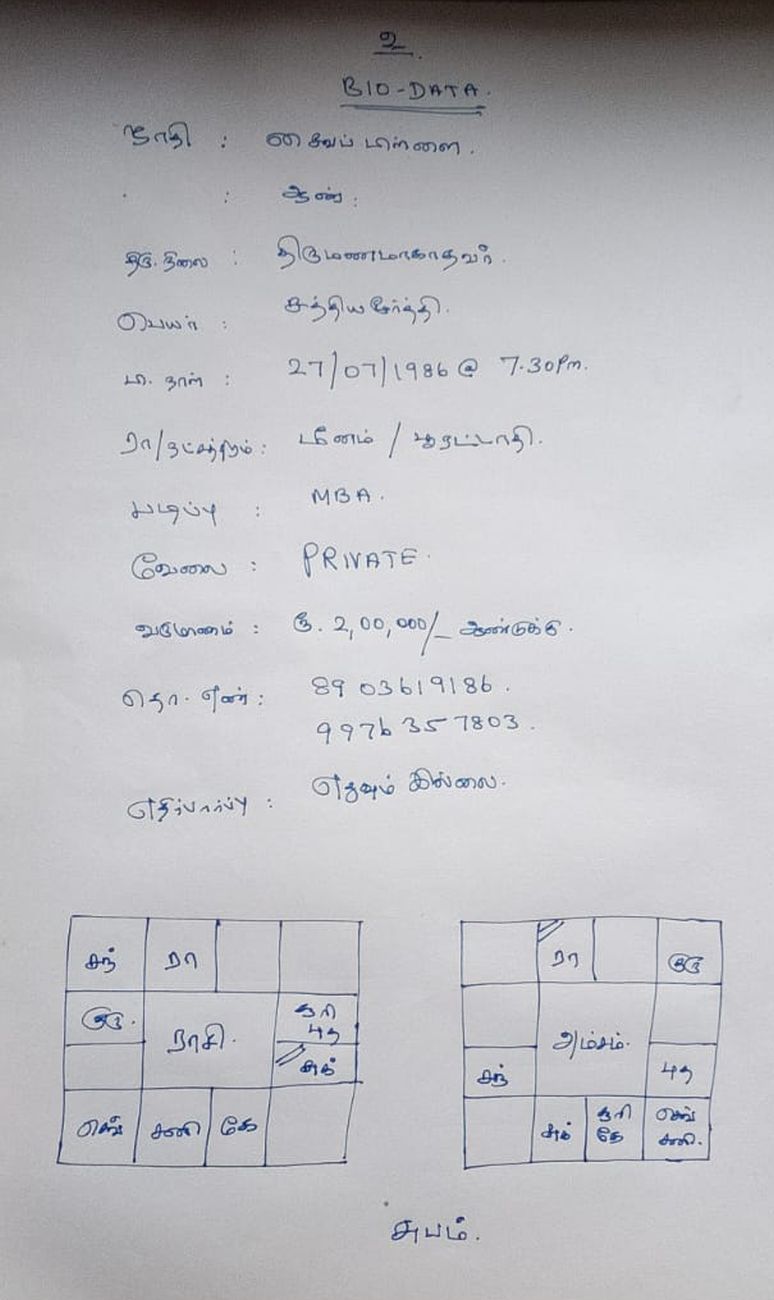 உ
BIO-DATA.
ஜாதி : சைவப் பிள்ளை.
: ஆண்.
திரு. நிலை : திருமணமாகாதவர்.
பெயர் :
பி. நாள் : 27/07/1986 @ 7.30Pm.
ரா/நட்சத்திரம் : மீனம் / பூரட்டாதி.
படிப்பு : MBA.
வேலை : PRIVATE.
வருமானம் : ரூ. 2,00,000/_ ஆண்டுக்கு.
தொ. எண் : 89 03619186.
9976 35 7803.
எதிர்பார்ப்பு : எதுவும் இல்லை.
சந் ரா
குரு.
ராசி.
சூரி
புத
சுக்
செவ் சனி கே
ரா குரு
அம்சம்.
சந் புத
சுக் சூரி கே செவ் சனி.
சுபம்.